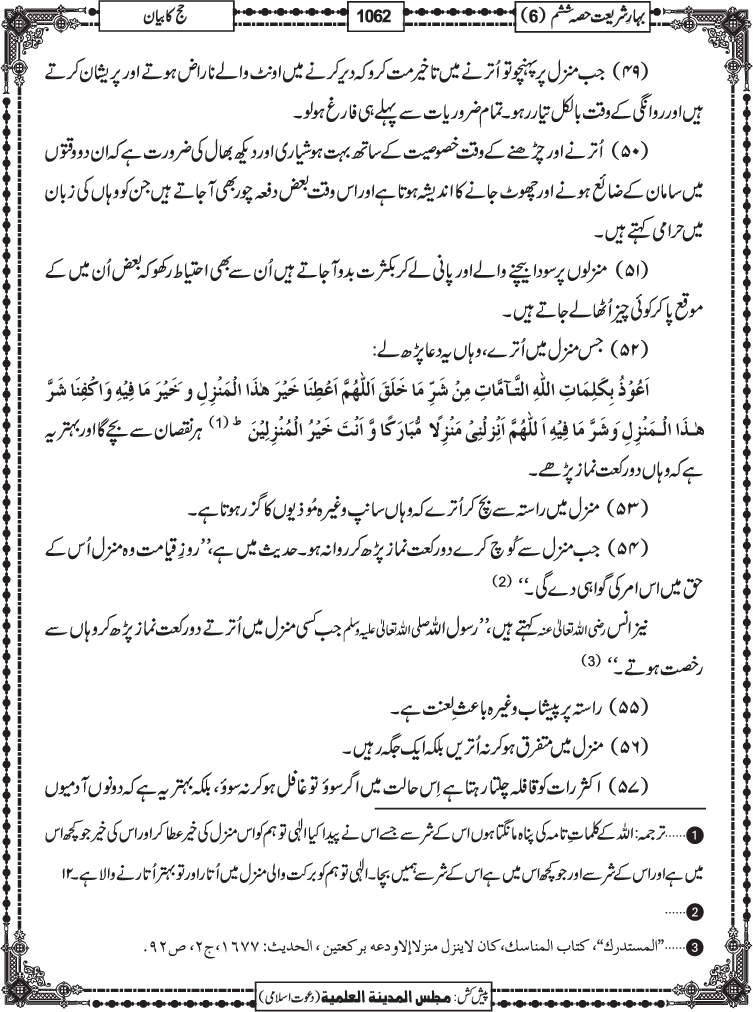 بہار شریعت حصہ ششم (6)
1062
حج کا بیان
(۴۹) جب منزل پر پہنچو تو اُترنے میں تاخیر مت کرو کہ دیر کرنے میں اونٹ والے ناراض ہوتے اور پریشان کرتے
ہیں اور روانگی کے وقت بالکل تیار رہو۔ تمام ضروریات سے پہلے ہی فارغ ہولو۔
(۵۰) اُترنے اور چڑھنے کے وقت خصوصیت کے ساتھ بہت ہوشیاری اور دیکھ بھال کی ضرورت ہے کہ ان دو وقتوں
میں سامان کے ضائع ہونے اور چھوٹ جانے کا اندیشہ ہوتا ہے اور اس وقت بعض دفعہ چور بھی آ جاتے ہیں جن کو وہاں کی زبان
میں حرامی کہتے ہیں۔
(۵۱) منزلوں پر سودا بیچنے والے اور پانی لے کر بکثرت بدو آجاتے ہیں اُن سے بھی احتیاط رکھو کہ بعض اُن میں کے
موقع پا کر کوئی چیز اُٹھا لے جاتے ہیں۔
(۵۲) جس منزل میں اُترے، وہاں یہ دعا پڑھ لے:
اَعُوْذُ بِکَلِمَاتِ اللّٰہِ التَّآمَّاتِ مِنْ شَرِّ مَا خَلَقَ اَللّٰھُمَّ اَعْطِنَا خَیْرَ ھٰذَا الْمَنْزِلِ وَ خَیْرَ مَا فِیْہِ وَاکْفِنَا شَرَّ
ھٰذَا الْمَنْزِلِ وَشَرَّ مَا فِیْہِ اَللّٰھُمَّ اَنْزِلْنِیْ مَنْزِلًا مُّبَارَکًا وَّ اَنْتَ خَیْرُ الْمُنْزِلِیْنَ ط (1) ہر نقصان سے بچے گا اور بہتر یہ
ہے کہ وہاں دو رکعت نماز پڑھے۔
(۵۳) منزل میں راستہ سے بچ کر اُترے کہ وہاں سانپ وغیرہ مُوذیوں کا گزر ہوتا ہے۔
(۵۴) جب منزل سے کُوچ کرے دو رکعت نماز پڑھ کر روانہ ہو۔ حدیث میں ہے، ’’روزِ قیامت وہ منزل اُس کے
حق میں اس امر کی گواہی دے گی۔‘‘ (2)
نیز انس رضی اللہ تعالیٰ عنہ کہتے ہیں، ’’رسول اللہ صلی اللہ تعالیٰ علیہ وسلم جب کسی منزل میں اُترتے دو رکعت نماز پڑھ کر وہاں سے
رخصت ہوتے۔‘‘ (3)
(۵۵) راستہ پر پیشاب وغیرہ باعثِ لعنت ہے۔
(۵۶) منزل میں متفرق ہو کر نہ اُتریں بلکہ ایک جگہ رہیں۔
(۵۷) اکثر رات کو قافلہ چلتا رہتا ہے اِس حالت میں اگر سوؤ تو غافل ہو کر نہ سوؤ، بلکہ بہتر یہ ہے کہ دونوں آدمیوں
1......ترجمہ: اللہ کے کلماتِ تامہ کی پناہ مانگتا ہوں اس کے شر سے جسے اس نے پیدا کیا الٰہی تو ہم کو اس منزل کی خیر عطا کر اور اس کی خیر جو کچھ اس
میں ہے اور اس کے شر سے اور جو کچھ اس میں ہے اس کے شر سے ہمیں بچا۔ الٰہی تو ہم کو برکت والی منزل میں اُتار اور تو بہتر اُتارنے والا ہے۔ ۱۲
2......
3......"المستدرك"، كتاب المناسك، كان لاينزل منزلا إلا ودعه بركعتين، الحديث: ١٦٧٧، ج٢، ص٩٢.
پیش کش: مجلس المدینة العلمیة (دعوت اسلامی)